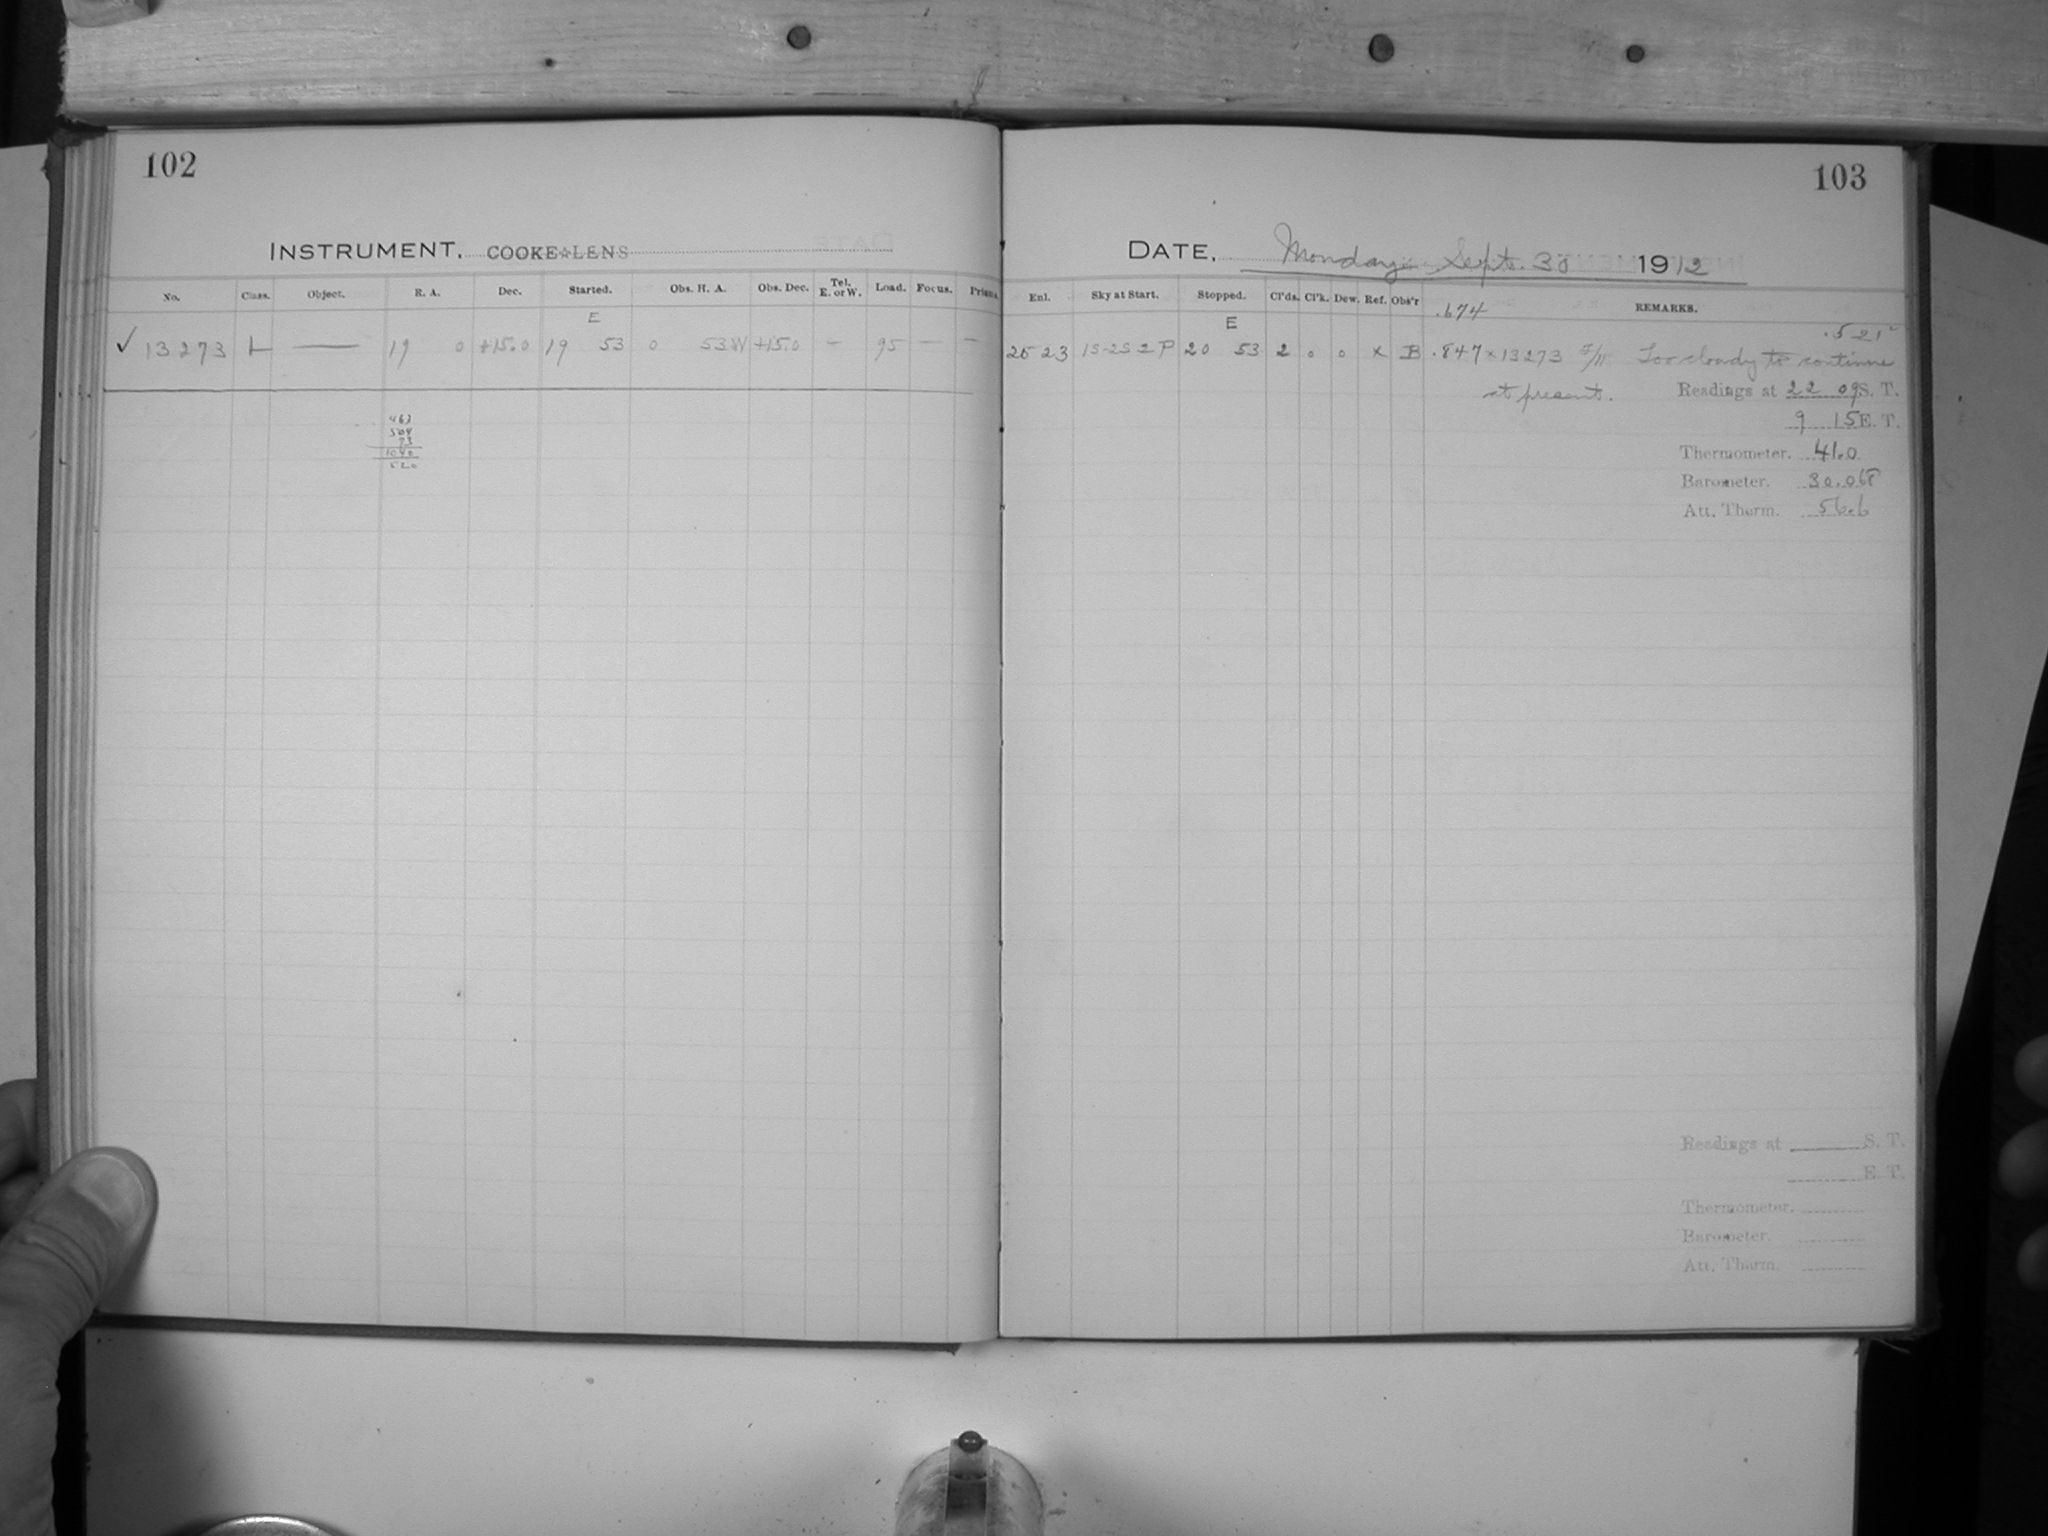 102
103
INSTRUMENT. COOKE☆LENS
DATE, Monday Sept. 30 1912
No. Class. Object. R. A. Dec. Started. Obs. H. A. Obs. Dec. Tel. E. or W. Load. Focus. Prisms.
Enl. Sky at Start. Stopped. Cl'ds. Cl'k. Dew. Ref. Obs'r .674 REMARKS.
E
E
.521
✓ 13273 L — 19 0 +15.0 19 53 0 53W +15.0 – 95 – –
25 23 1S-2S 2 P 20 53 2 0 0 x B .847 x 13273 5/11 Too cloudy to continue
at present.
Readings at 22 09 S. T.
9 15 E. T.
Thermometer. 41.0
Barometer. 30.068
Att. Therm. 56.6
463
504
73
1040
520
Readings at S. T.
E. T.
Thermometer.
Barometer.
Att. Therm.